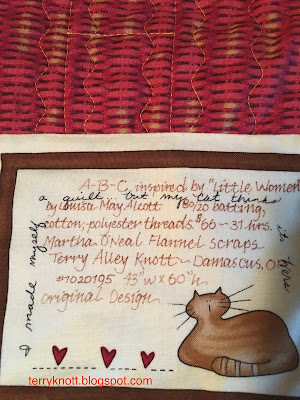 A-B-C, inspired by "Little Women"
by Louisa May Alcott 80/20 batting,
cotton, polyester threads. $66 ~ 31 hrs.
Martha O'Neal Flannel scraps
Terry Alley Knott ~ Damascus, OR
#1020195 43"w x 60"h
Original Design
I made myself a quilt, but my cat thinks it's hers
terryknott.blogspot.com